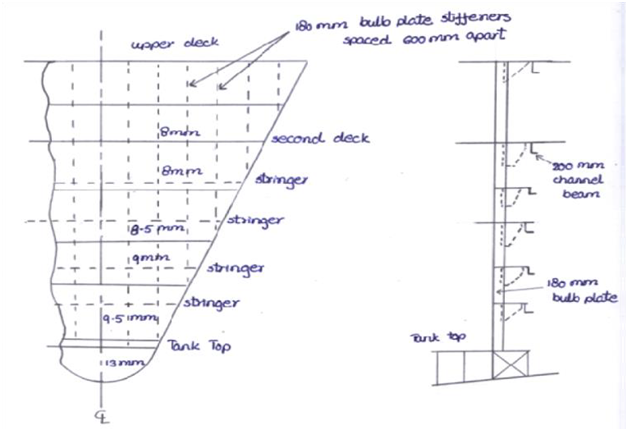 180 mm bulb plate stiffeners
spaced 600mm apart
upper deck
8mm
second deck
8mm
stringer
stringer
8.5 mm
9mm
stringer
stringer
9.5mm
Tank Top
13mm
CL
200 mm
channel
beam
180 mm
bulb plate
Tank top